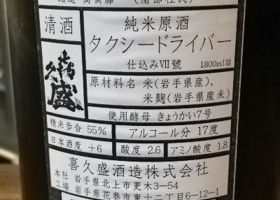 清酒
純米原酒
タクシードライバー
仕込みⅦ号 1800ml詰
原材料名 米(岩手県産)、
米麹(岩手県産米)
使用酵母 きょうかい7号
喜久盛
精米歩合 55% アルコール分 17度
日本酒度 +6 酸度 2.6 アミノ酸度 1.8
喜久盛酒造株式会社
住所 岩手県北上市更木3-54
工場 岩手県花巻市東十二丁目